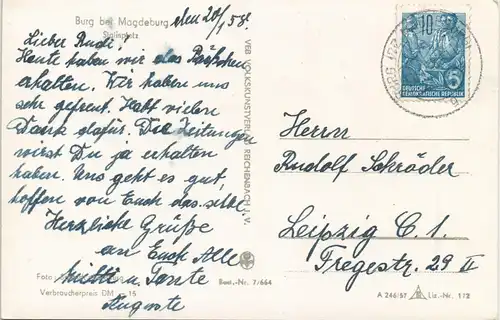 Burg bei Magdeburg
Stalinplatz
den 20/1. 58.
Lieber Rudi!
Heute haben wir das Päckchen
erhalten. Wir haben uns
sehr gefreut. Habt vielen
Dank dafür. Die Zeitungen
wirst Du ja erhalten
haben. Uns geht es gut,
hoffen von Euch das selbe.
Herzliche Grüße
an Euch Alle
u. Tante
Auguste
Foto:
Verbraucherpreis DM 15
Best.-Nr. 7/664
VEB VOLKSKUNSTVERLAG REICHENBACH I. V.
10
DEUTSCHE
DEMOKRATISCHE REPUBLIK
Herrn
Rudolf Schröder
Leipzig C. 1.
Fregestr. 29 II
A 246/57 Liz.-Nr. 172